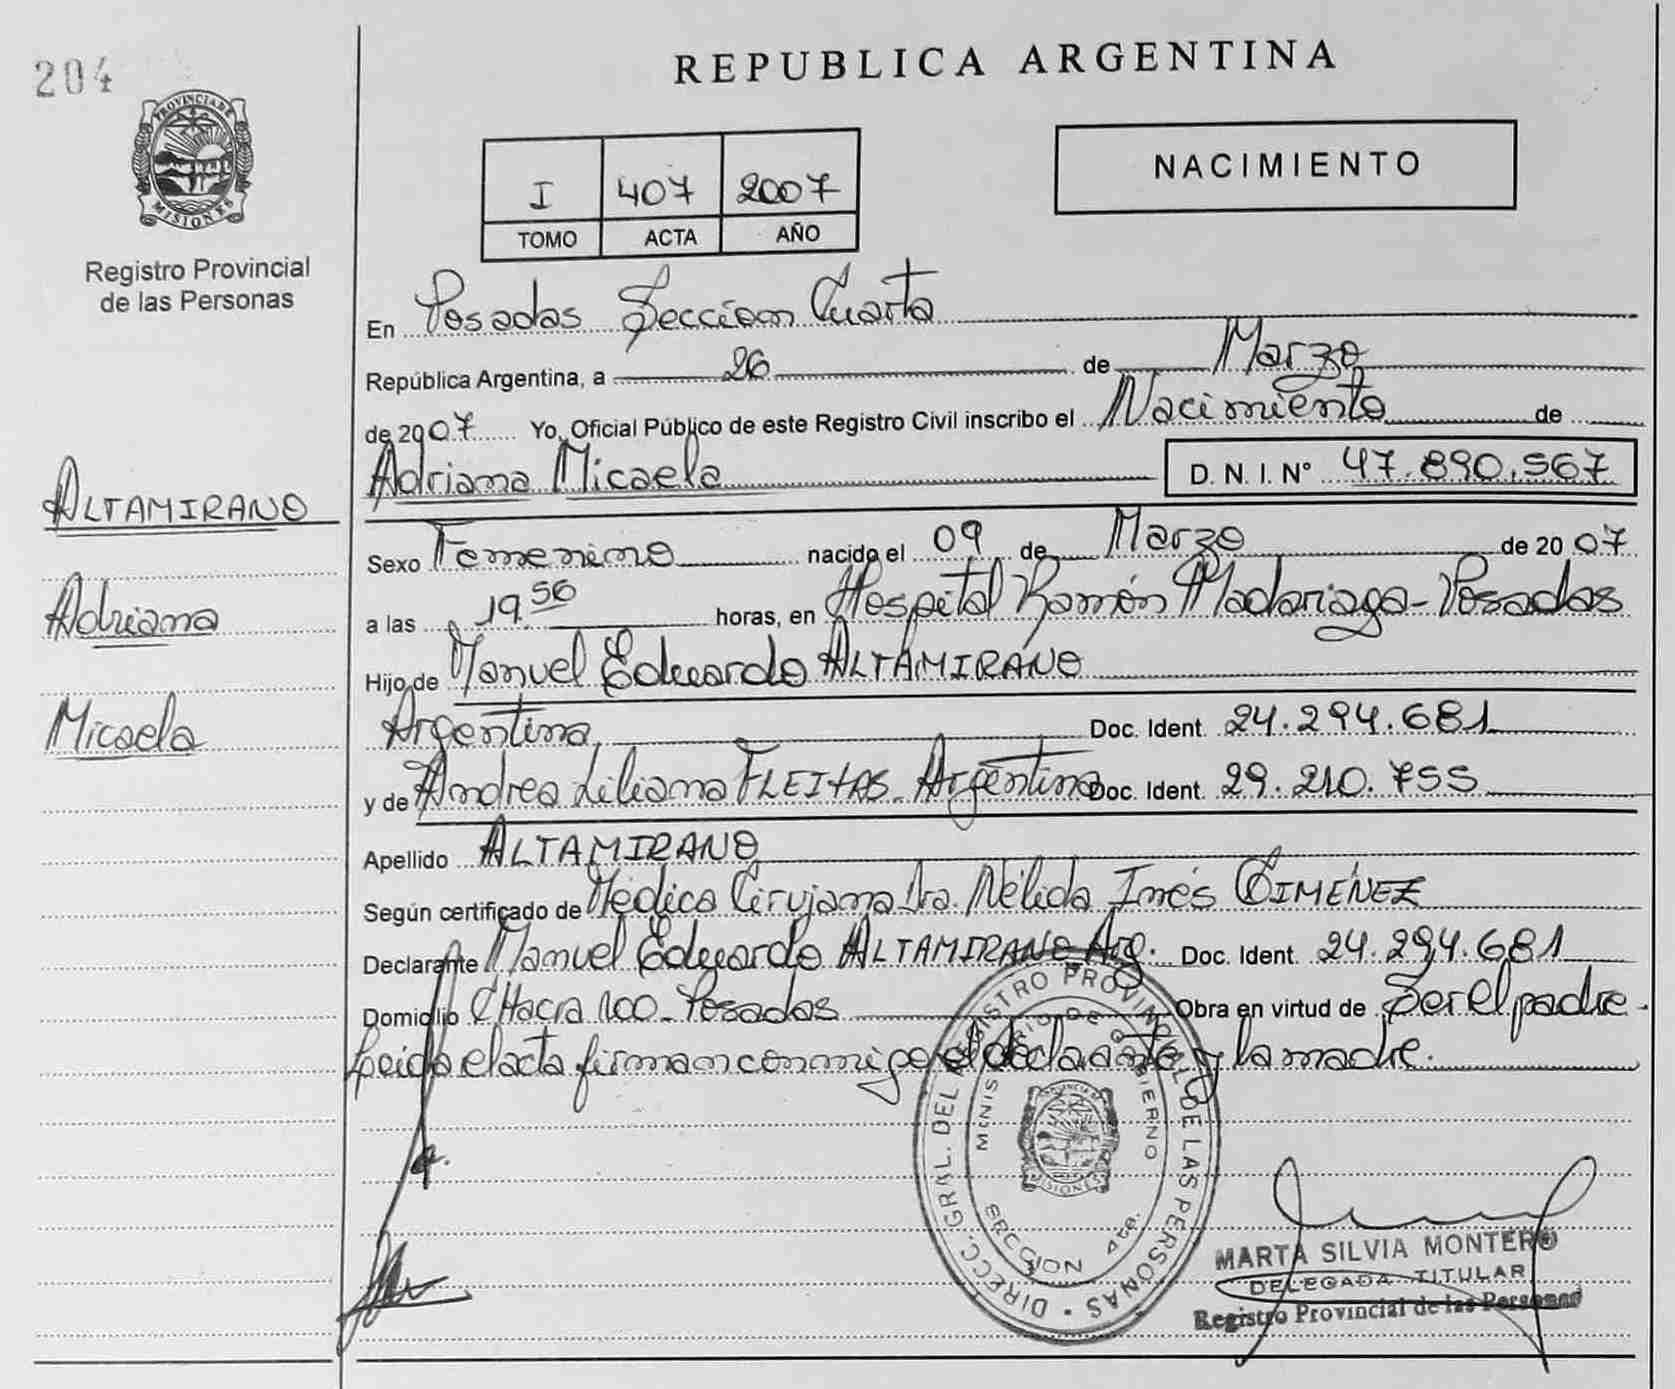 204
PROVINCIA DE
MISIONES
Registro Provincial
de las Personas
ALTAMIRANO
Adriana
Micaela
REPUBLICA ARGENTINA
I 407 2007
TOMO ACTA AÑO
NACIMIENTO
En Posadas Seccion Cuarta
República Argentina, a 26 de Marzo
de 2007 Yo, Oficial Público de este Registro Civil inscribo el Nacimiento de
Adriana Micaela D. N. I. Nº 47.890.567
Sexo Femenino nacido el 09 de Marzo de 2007
a las 19 56 horas, en Hospital Ramón Madariaga - Posadas
Hijo de Manuel Eduardo ALTAMIRANO
Argentina Doc. Ident. 24.294.681
y de Andrea Liliana FLEITAS - Argentina Doc. Ident. 29.210.755
Apellido ALTAMIRANO
Según certificado de Médica Cirujana Dra. Nélida Inés GIMENEZ
Declarante Manuel Eduardo ALTAMIRANO Arg. Doc. Ident. 24.294.681
Domicilio CHacra 100 - Posadas Obra en virtud de Ser el padre -
Leida el acta firman conmigo el declarante y la madre.
DIRECC. GRAL. DEL REGISTRO PROVINCIAL DE LAS PERSONAS
MINISTERIO DE GOBIERNO
PROVINCIA DE
MISIONES
SECCION 4ta.
MARTA SILVIA MONTERO
DELEGADA TITULAR
Registro Provincial de las Personas